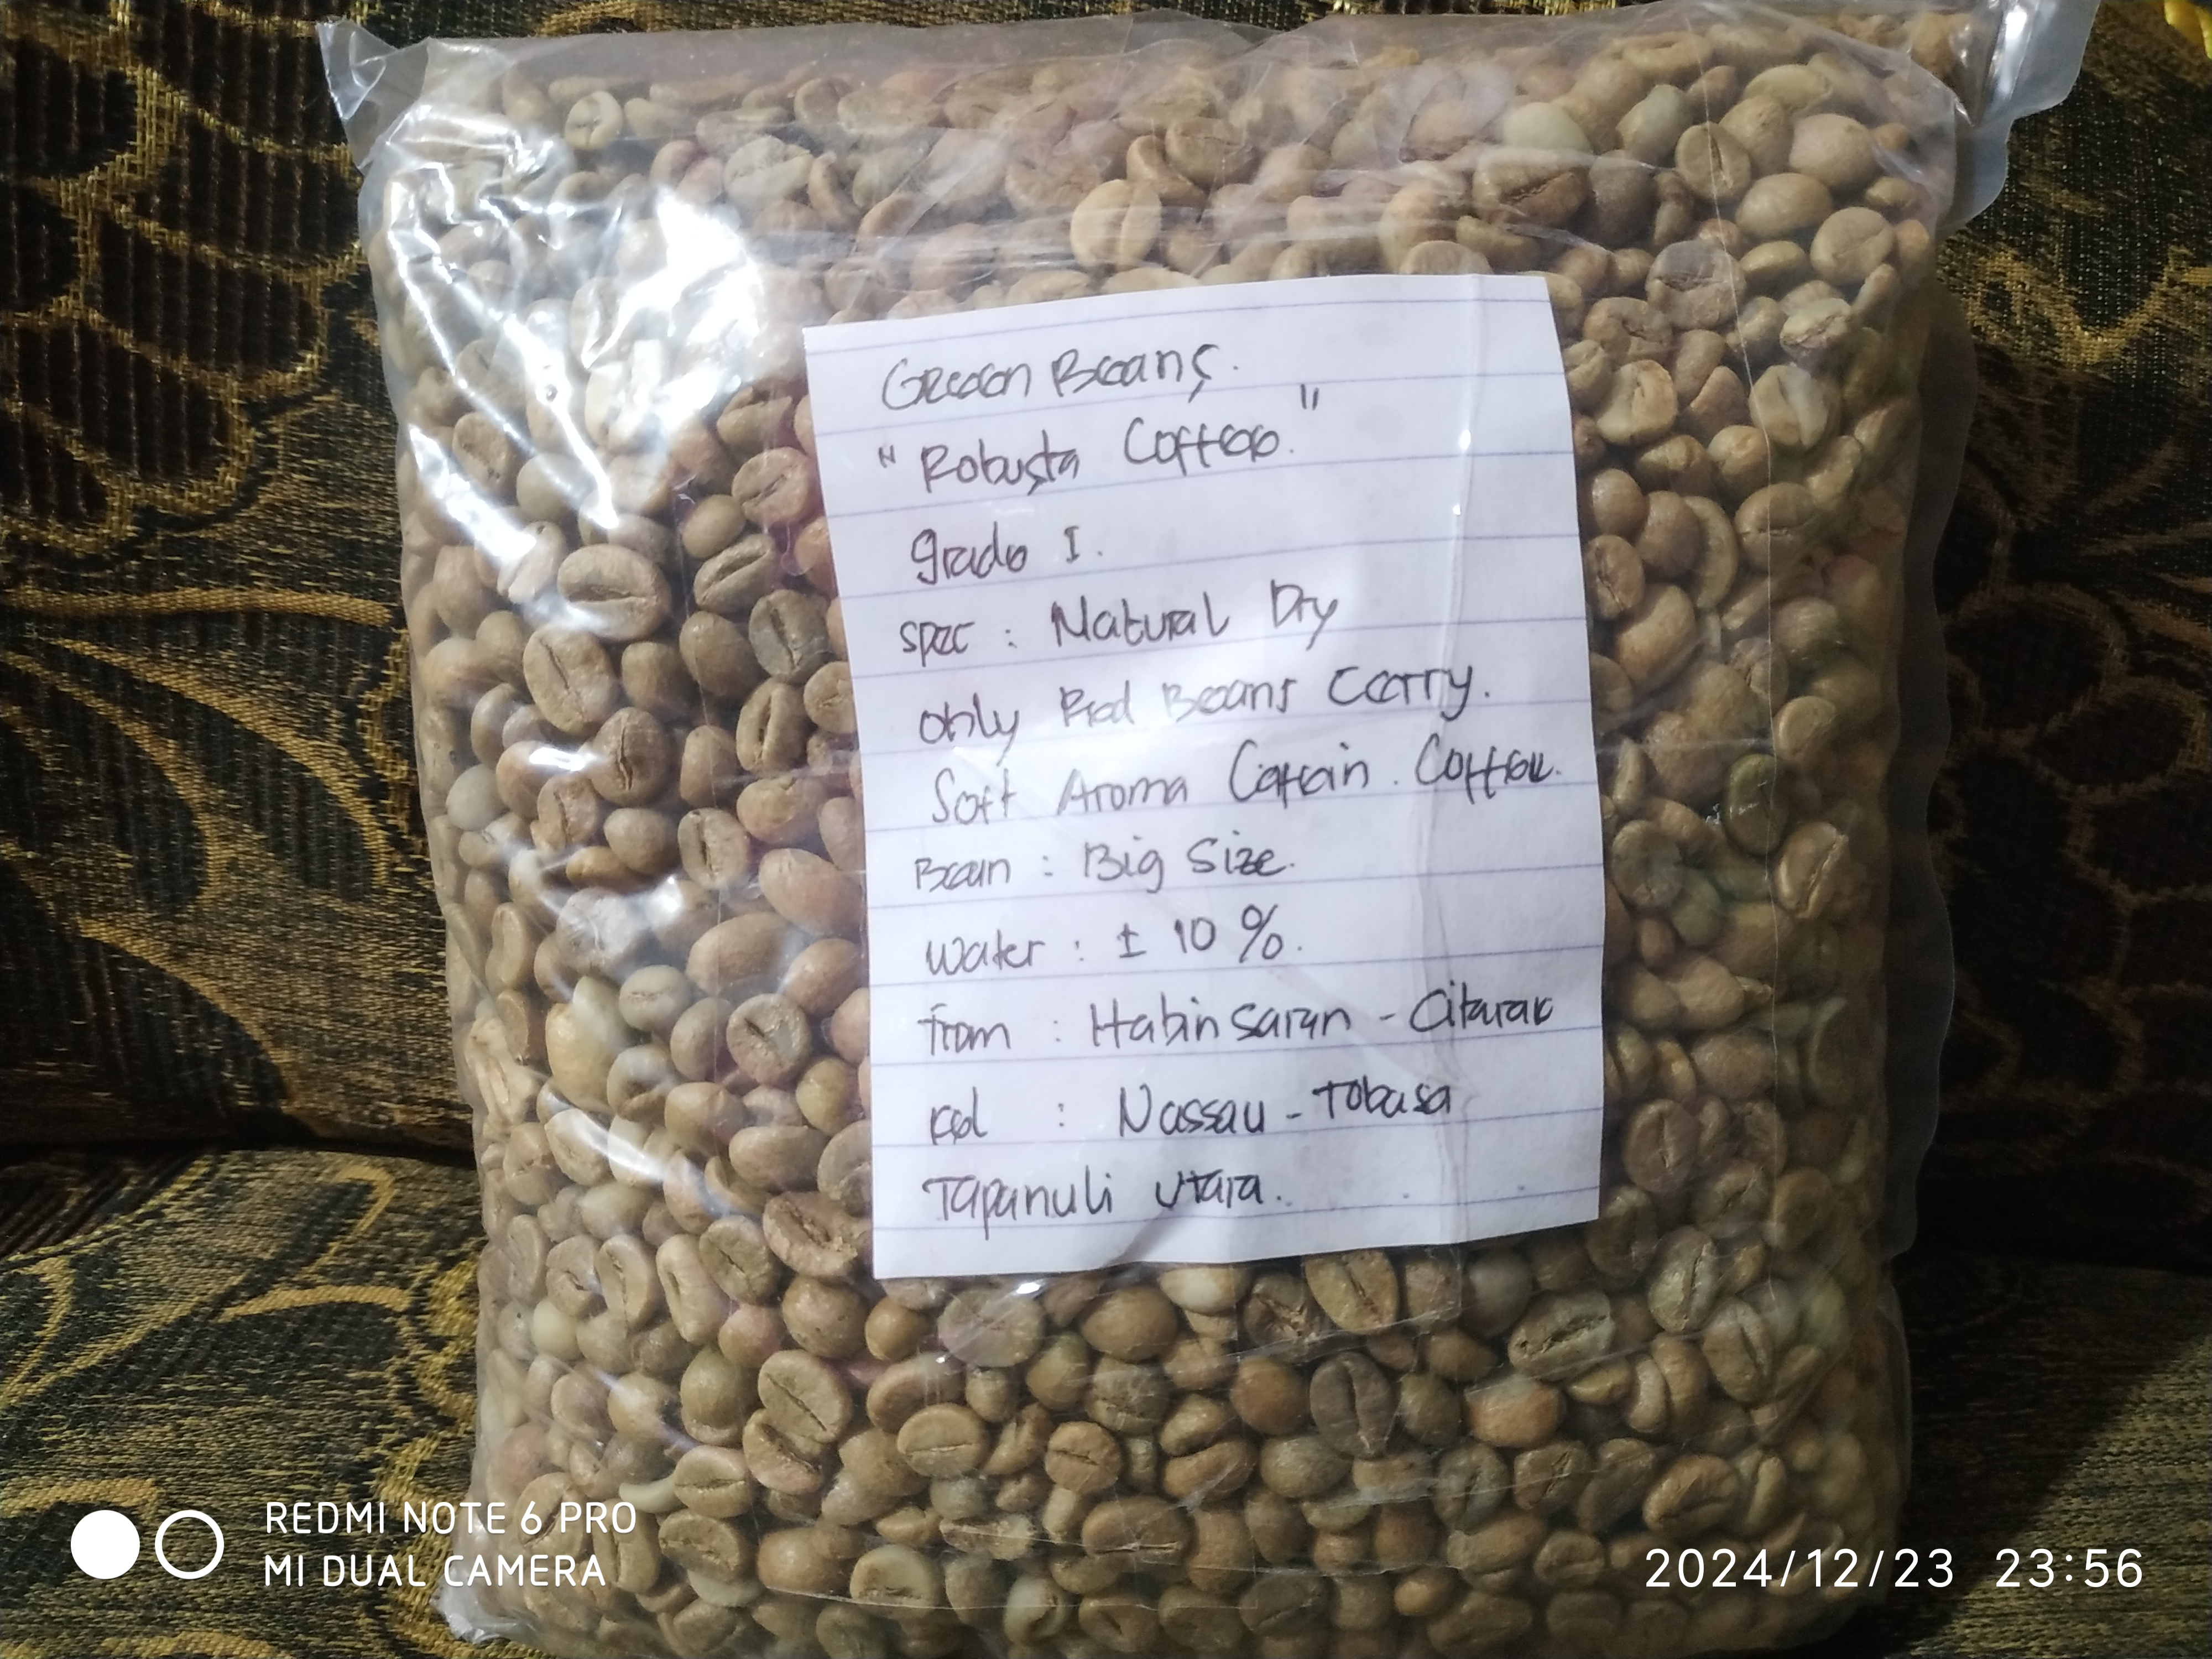 Green Beans.
"Robusta Coffee."
grade I.
spec : Natural Dry
only Red Beans Cerry.
Soft Aroma Cafein. Coffee.
Bean : Big Size.
Water : ± 10 %.
from : Habinsaran - Citarak
Kel : Nassau - Tobasa
Tapanuli Utara.
REDMI NOTE 6 PRO
MI DUAL CAMERA
2024/12/23 23:56